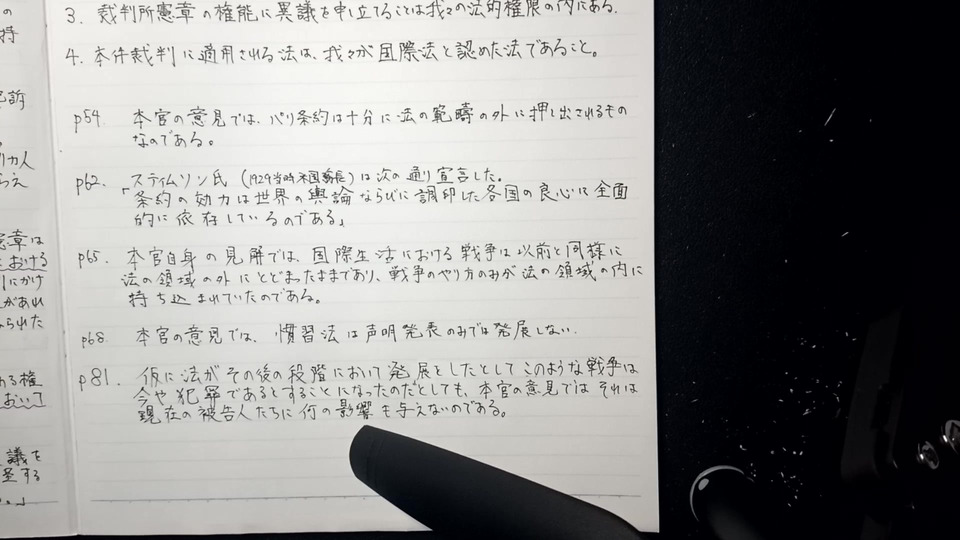 3. 裁判所憲章の権能に異議を申し立てることは我々の法的権限の内にある.
4. 本件裁判に適用される法は、我々が国際法と認めた法であること。
p54 本官の意見では、パリ条約は十分に法の範疇の外に押し出されるもの
なのである。
p62. スティムソン氏 (1929当時米国務長)は次の通り宣言した.
「条約の効力は世界の輿論ならびに調印した各国の良心に全面
的に依存しているのである」
p65. 本官自身の見解では、国際生活における戦争は以前と同様に
法の領域の外にとどまったままであり、戦争のやり方のみが法の領域の内に
持ち込まれていたのである。
p68. 本官の意見では、慣習法は声明発表のみでは発展しない.
p81. 仮に法がその後の段階において発展としたとしてこのような戦争は
今や犯罪であるとすることになったのだとしても、本官の意見ではそれは
現在の被告人たちに何の影響も与えないのである。
の
持
訴
人
らえ
憲章は
における
にかけ
があれ
られた
る権
おいて
議を
する